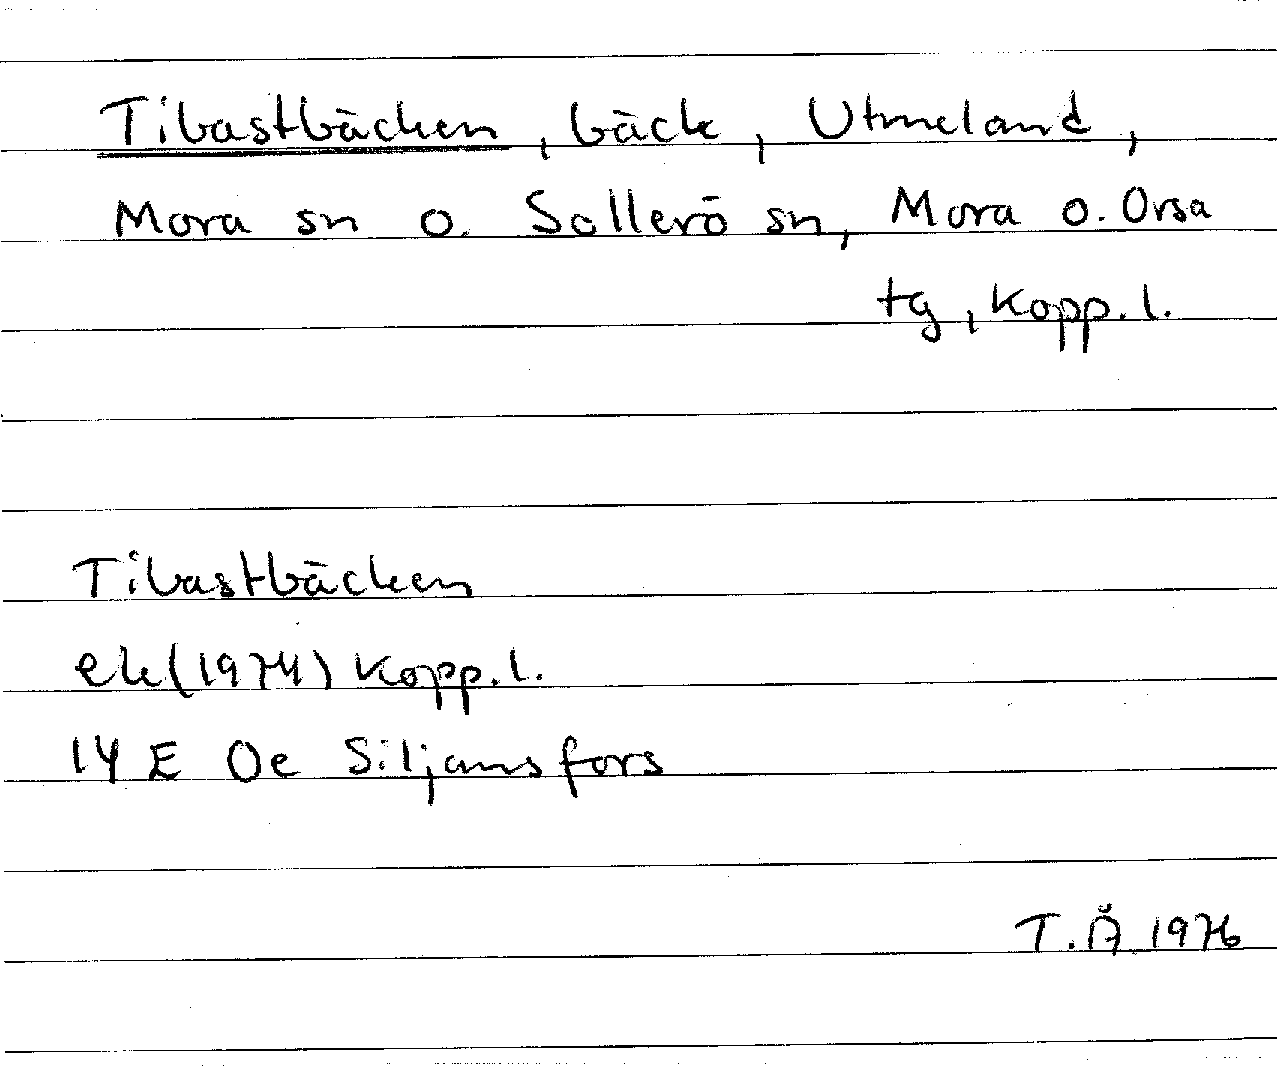 Tibastbäcken, bäck, Utmeland,
Mora sn o. Sollerö sn, Mora o. Orsa
tg, Kopp. l.
Tibastbäcken
ek (1974) Kopp. l.
14 E 0e Siljansfors
T. Å 1976